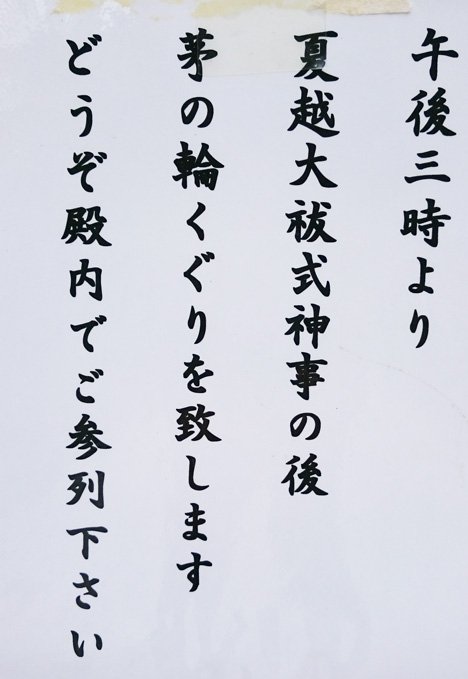 午後三時より
夏越大祓式神事の後
茅の輪くぐりを致します
どうぞ殿内でご参列下さい